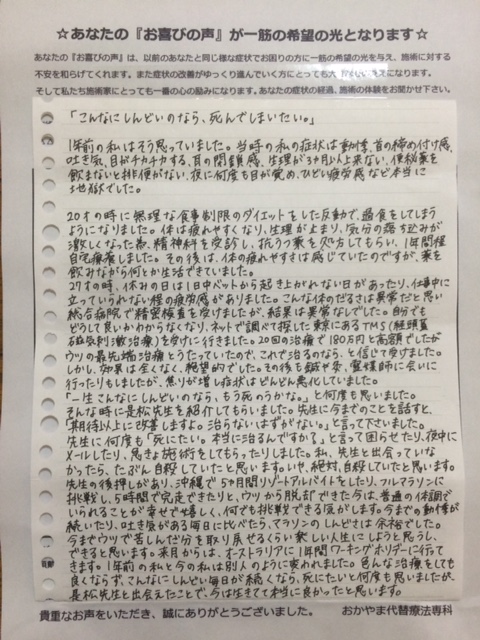 ☆あなたの『お喜びの声』が一筋の希望の光となります☆
あなたの『お喜びの声』は、以前のあなたと同じ様な症状でお困りの方に一筋の希望の光を与え、施術に対する
不安を和らげてくれます。また症状の改善がゆっくり進んでいく方にとっても大になります。
そして私たち施術家にとっても一番の心の励みになります。あなたの症状の経過、施術の体験をお聞かせ下さい。
「こんなにしんどいのなら、死んでしまいたい。」
1年前の私はそう思っていました。当時の私の症状は動悸、首の締め付け感、
吐き気、目がチカチカする、耳の閉鎖感、生理が3ヶ月以上来ない、便秘薬を
飲まないと排便がない、夜に何度も目が覚め、ひどい疲労感など本当に
地獄でした。
20才の時に無理な食事制限のダイエットをした反動で、過食をしてしまう
ようになりました。体は疲れやすくなり、生理が止まり、気分の落ち込みが
激しくなった為、精神科を受診し、抗うつ薬を処方してもらい、1年間程
自宅療養しました。その後は、体の疲れやすさは感じていたのですが、薬を
飲みながら何とか生活できていました。
27才の時、休みの日は1日中ベットから起き上がれない日があったり、仕事中に
立っていられない程の疲労感がありました。こんな体のだるさは異常だと思い
総合病院で精密検査を受けましたが、結果は異常なしでした。自分でも
どうして良いかわからなくなり、ネットで調べて探した東京にあるTMS(経頭蓋
磁気刺激治療)を受けに行きました。20回の治療で180万円と高額でしたが
ウツの最先端治療とうたっていたので、これで治るのなら、と信じて受けました。
しかし、効果は全くなく、絶望的でした。その後も鍼や灸、霊媒師に会いに
行ったりもしましたが、焦りが増し症状はどんどん悪化していました。
「一生こんなにしんどいのなら、もう死のうかな。」と何度も思いました。
そんな時に是松先生を紹介してもらいました。先生に今までのことを話すと、
「期待以上に改善しますよ。治らないはずがない。」と言って下さいました。
先生に何度も「死にたい。本当に治るんですか？」と言って困らせたり、夜中に
メールしたり、急きょ施術をしてもらったりしました。私、先生と出会っていな
かったら、たぶん自殺していたと思います。いや、絶対、自殺していたと思います。
先生の後押しがあり、沖縄で5ヶ月間リゾートアルバイトをしたり、フルマラソンに
挑戦し、5時間で完走できたりと、ウツから脱却できた今は、普通の体調で
いられることが幸せで嬉しく、何でも挑戦できる気がします。今までの動悸が
続いたり、吐き気がある毎日に比べたら、マラソンのしんどさは余裕でした。
今までウツで苦しんだ分を取り戻せるくらい楽しい人生にしようと思うし、
できると思います。来月からは、オーストラリアに1年間ワーキングホリデーに行って
きます。1年前の私と今の私は別人のように変われました。色んな治療をしても
良くならず、こんなにしんどい毎日が続くなら、死にたいと何度も思いましたが、
是松先生と出会えたことで、今は生きてて本当に良かったと思います。
貴重なお声をいただき、誠にありがとうございました。 おかやま代替療法専科